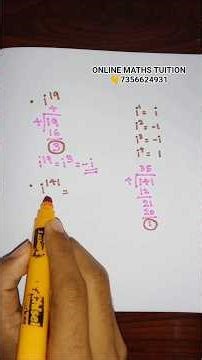 ONLINE MATHS TUITION
👇7356624931
• i¹⁹
4
4)19
16
3
i¹⁹ = i³ = -i
i¹ = i
i² = -1
i³ = -i
i⁴ = 1
• i¹⁴¹ =
35
4)141
12
21
20
1